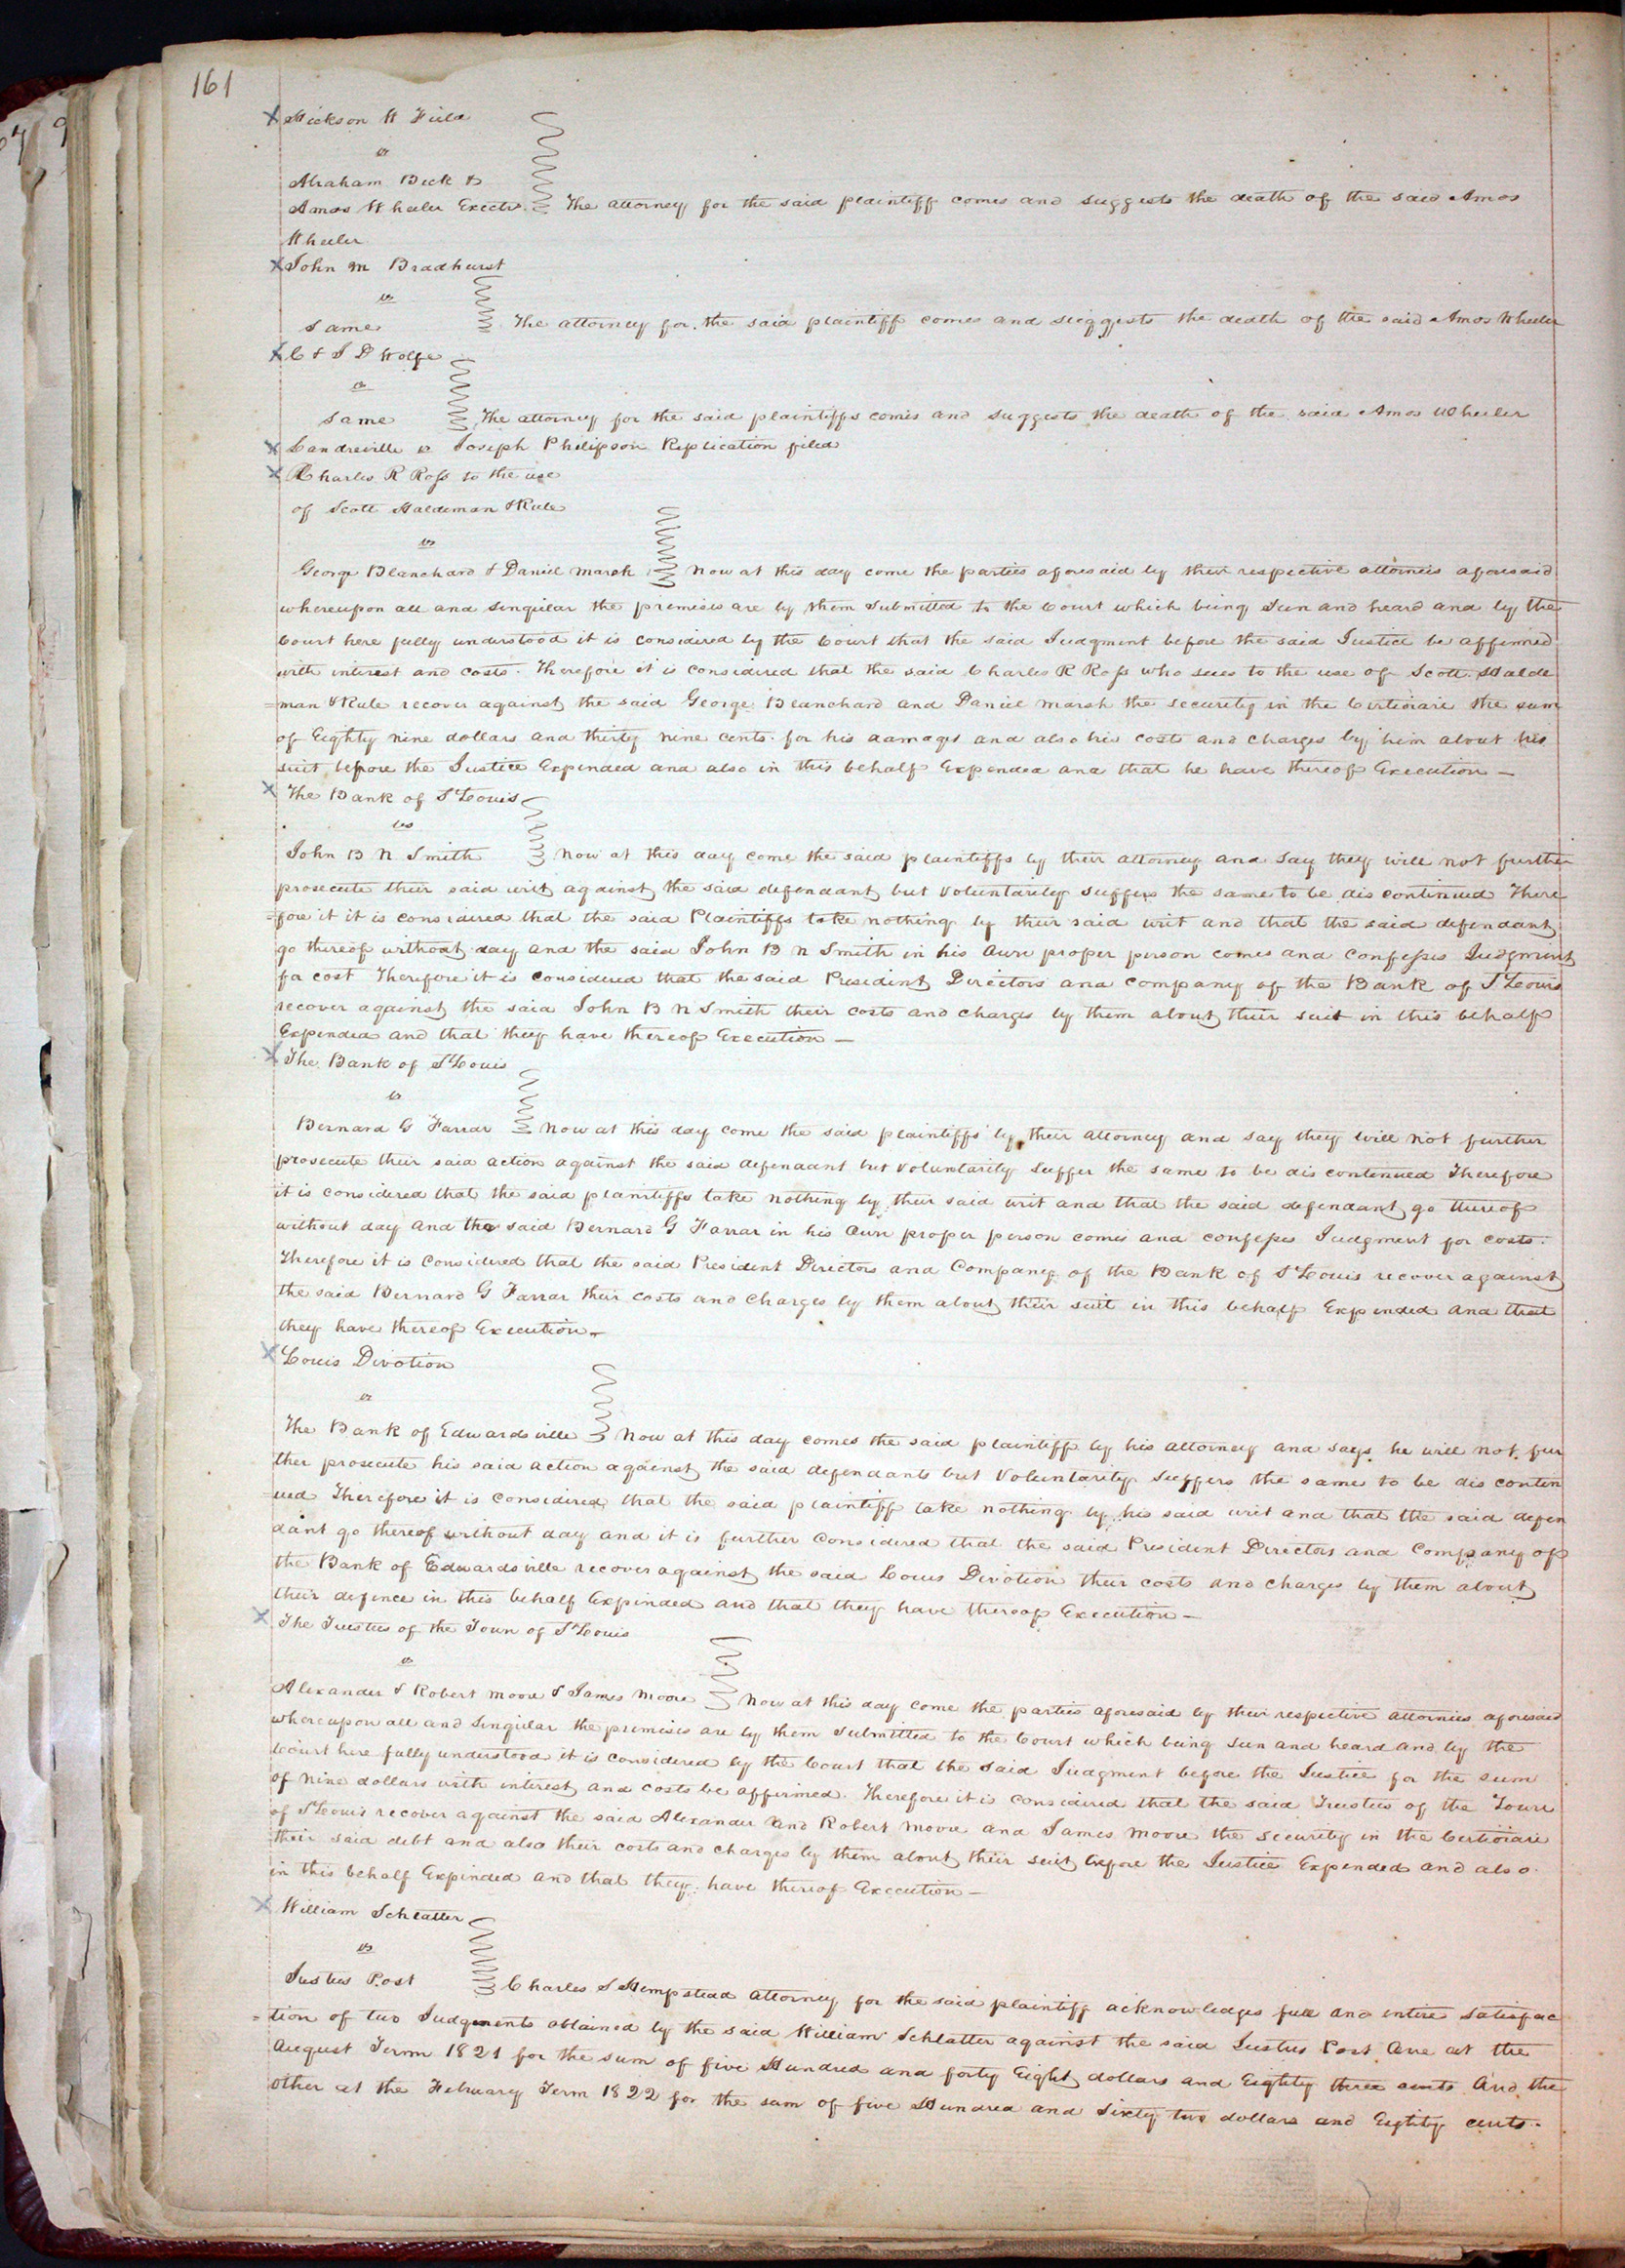 161
Hickson W Field
vs
Abraham Beck &
Amos Wheeler Exectr. The attorney for the said plaintiff comes and suggests the death of the said Amos
Wheeler
John M Bradhurst
vs
Same The attorney for the said plaintiff comes and suggests the death of the said Amos Wheeler
C & J D Wolfe
vs
Same The attorney for the said plaintiffs comes and suggests the death of the said Amos Wheeler
Landreville vs Joseph Philipson Replication filed
Charles R Ross to the use
of Scott Haldeman & Rule
vs
George Blanchard & Daniel Marsh Now at this day come the parties aforesaid by their respective attornies aforesaid
whereupon all and singular the premises are by them submitted to the Court which being Seen and heard and by the
Court here fully understood it is considered by the Court that the said Judgment before the said Justice be affirmed
with interest and costs. Therefore it is considered that the said Charles R Ross who sues to the use of Scott Halde
=man & Rule recover against the said George Blanchard and Daniel Marsh the security in the Certiorari the sum
of Eighty nine dollars and thirty nine cents for his damages and also his costs and charges by him about his
suit before the Justice Expended and also in this behalf Expended and that he have thereof Execution —
The Bank of St Louis
vs
John B N Smith Now at this day come the said plaintiffs by their attorney and say they will not further
prosecute their said writ against the said defendant but voluntarily suffers the same to be discontinued There
=fore it it is considered that the said Plaintiffs take nothing by their said writ and that the said defendant
go thereof without day and the said John B N Smith in his own proper person comes and confesses Judgment
for cost Therefore it is considered that the said President Directors and company of the Bank of St Louis
recover against the said John B N Smith their costs and charges by them about their suit in this behalf
Expended and that they have thereof Execution —
The Bank of St Louis
vs
Bernard G Farrar Now at this day come the said plaintiffs by their attorney and say they will not further
prosecute their said action against the said defendant but voluntarily suffer the same to be discontinued Therefore
it is considered that the said plaintiffs take nothing by their said writ and that the said defendant go thereof
without day and the said Bernard G Farrar in his own proper person comes and confesses Judgment for costs.
Therefore it is considered that the said President Directors and Company of the Bank of St Louis recover against
the said Bernard G Farrar their costs and charges by them about their suit in this behalf Expended and that
they have thereof Execution —
Louis Divotion
vs
The Bank of Edwardsville Now at this day comes the said plaintiff by his attorney and says he will not fur
ther prosecute his said action against the said defendants but voluntarily suffers the same to be discontin
=ued Therefore it is considered that the said plaintiff take nothing by his said writ and that the said defen
dant go thereof without day and it is further considered that the said President Directors and Company of
the Bank of Edwardsville recover against the said Louis Divotion their costs and charges by them about
their defence in this behalf Expended and that they have thereof Execution —
The Trustees of the Town of St Louis
vs
Alexander & Robert Moore & James Moore Now at this day come the parties aforesaid by their respective attornies aforesaid
whereupon all and singular the premises are by them submitted to the Court which being seen and heard and by the
Court here fully understood it is considered by the Court that the said Judgment before the Justice for the sum
of nine dollars with interest and costs be affirmed. Therefore it is considered that the said Trustees of the Town
of St Louis recover against the said Alexander and Robert Moore and James Moore the security in the Certiorari
their said debt and also their costs and charges by them about their suit before the Justice Expended and also
in this behalf Expended and that they have thereof Execution —
William Schlatter
vs
Justus Post Charles S Hempstead attorney for the said plaintiff acknowledges full and entire satisfac
=tion of two Judgments obtained by the said William Schlatter against the said Justus Post One at the
August Term 1821 for the sum of five Hundred and forty Eight dollars and Eighty three cents And the
other at the February Term 1822 for the sum of five Hundred and Sixty two dollars and Eighty cents.